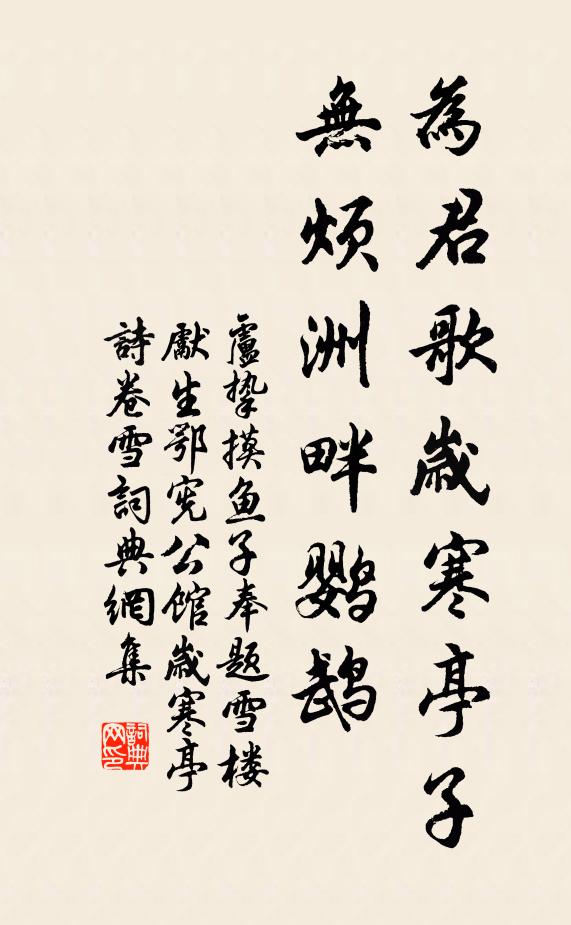 為君歌歲寒亭子
無煩洲畔鸚鵡
盧摯摸鱼子奉題雪楼
獻生鄂宪公館歲寒亭
詩卷雪詞典網集
詞典网印